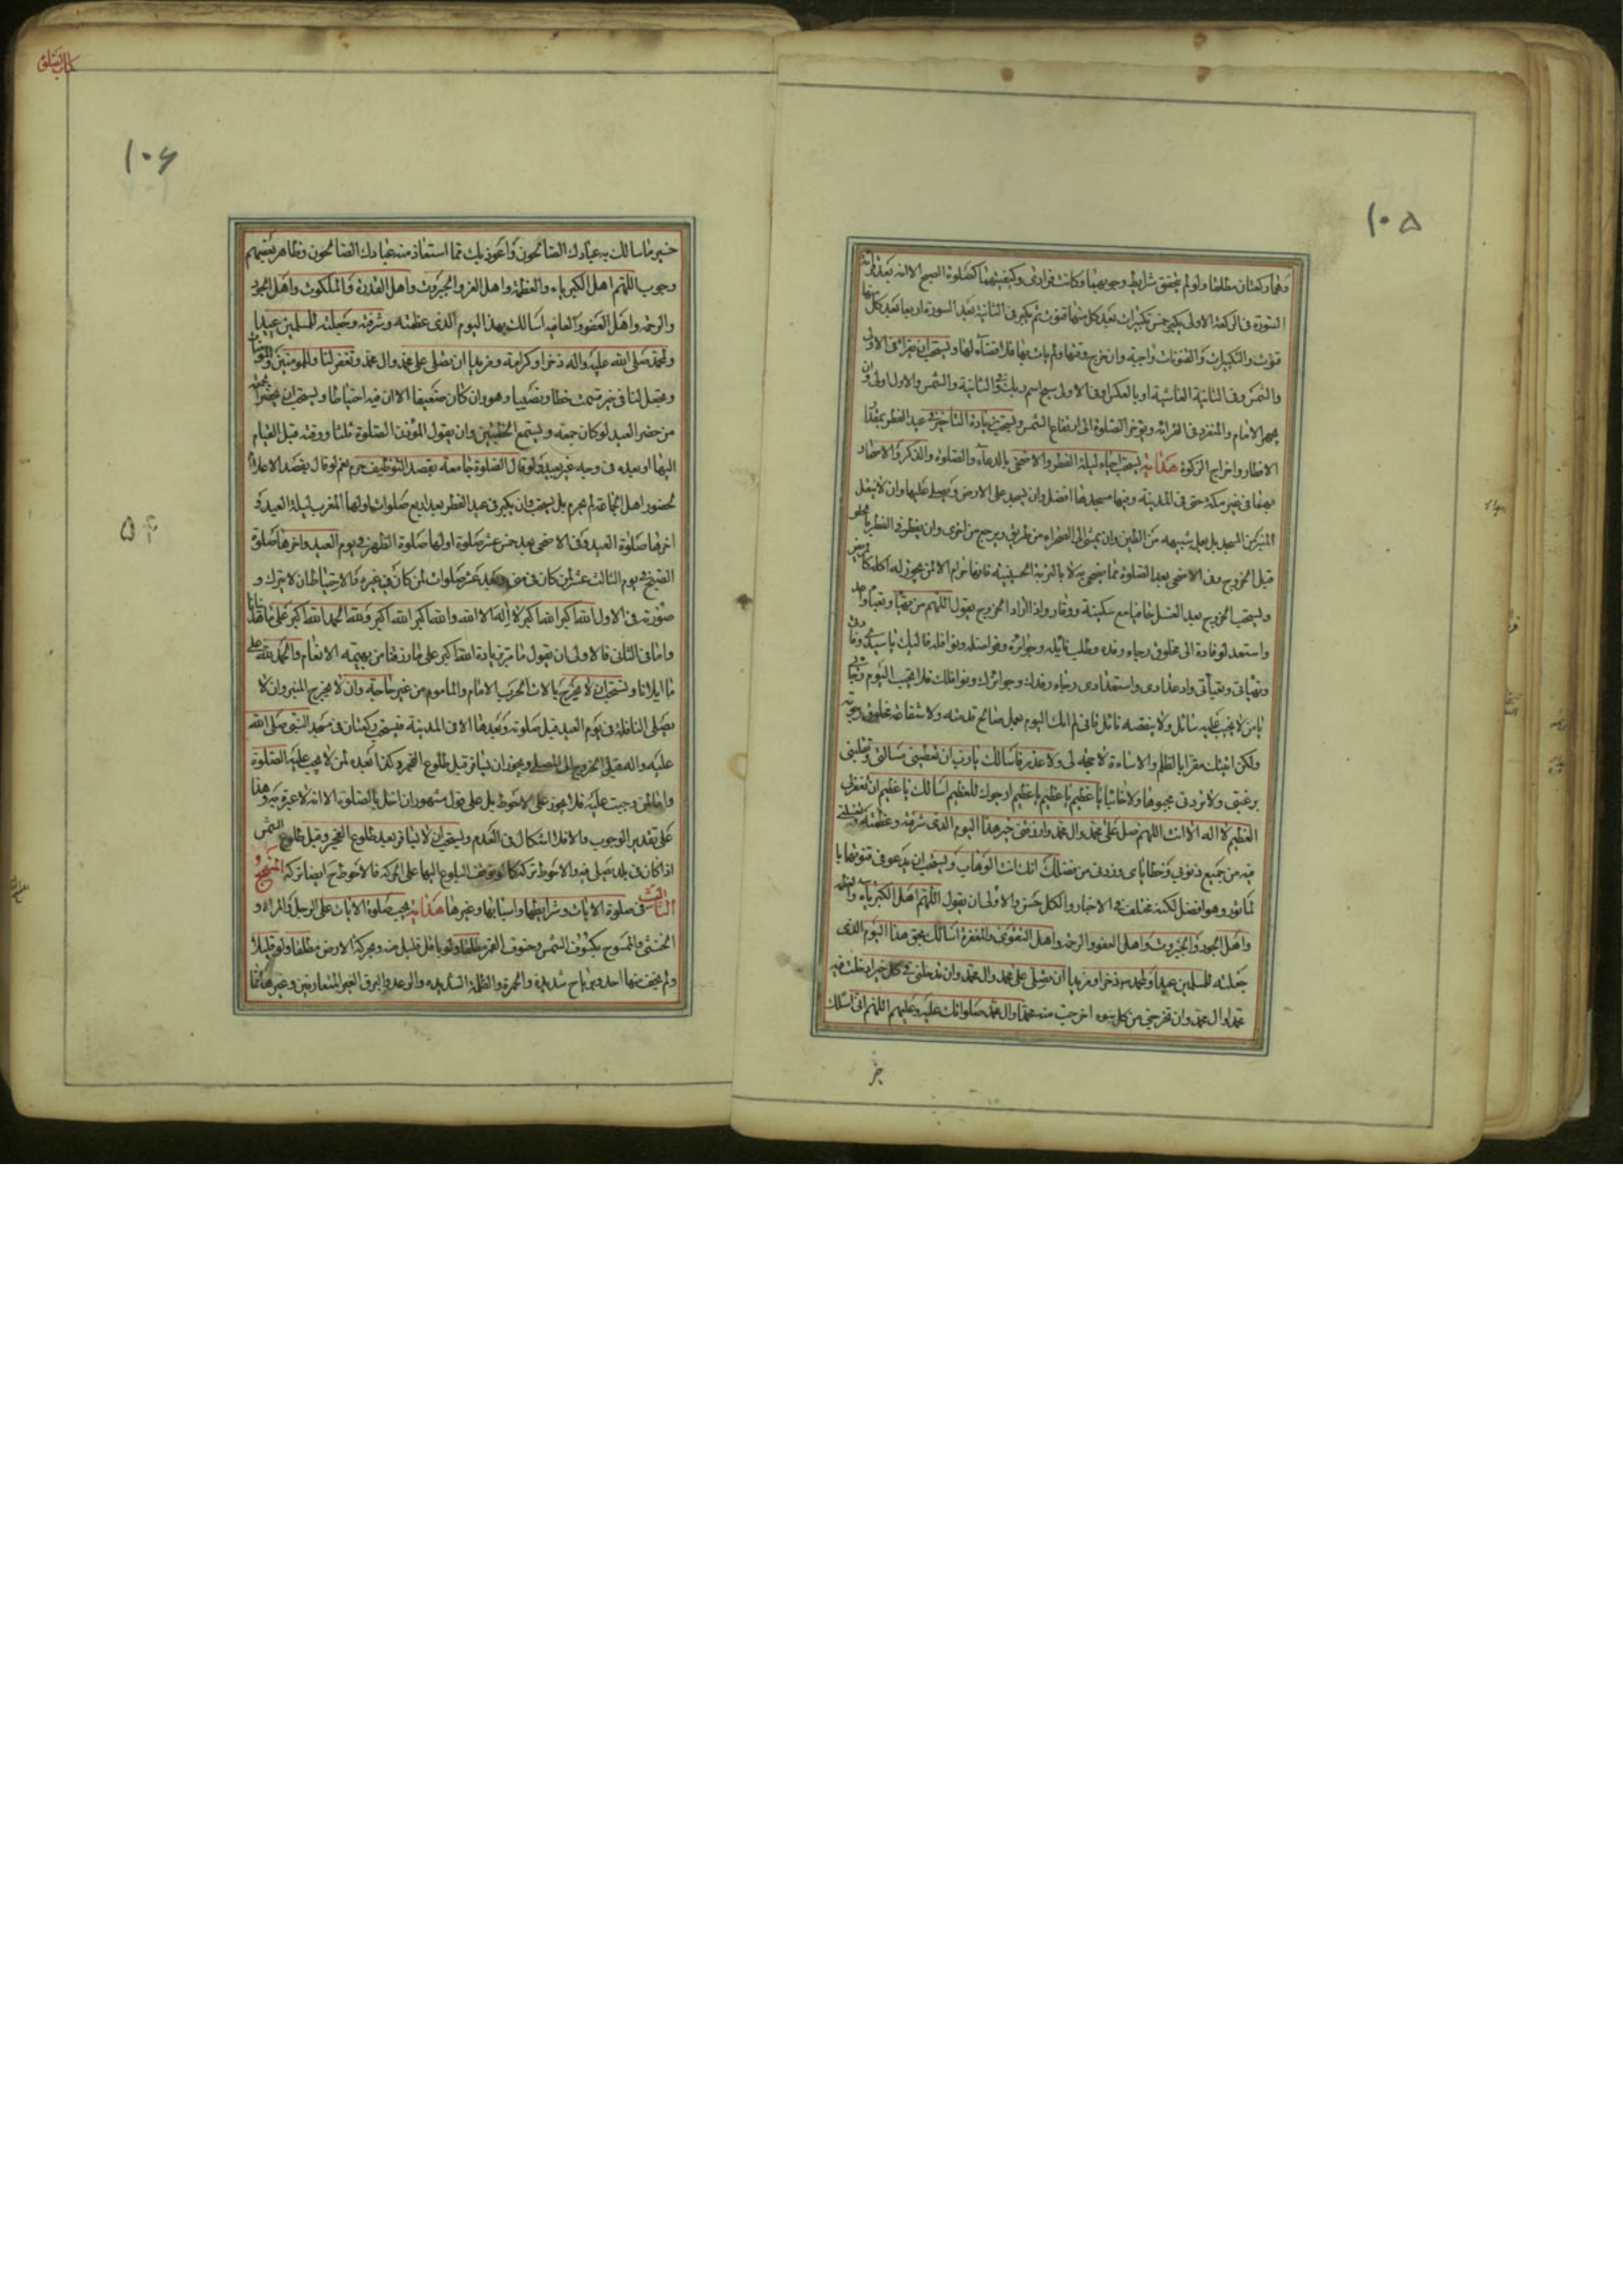 ١٠٥
وهما ركعتان مطلقا ولو لم يتحقق شرايط وجوبهما وكانت فرادى وكيفيتهما كصلوة الصبح الا انه بعد قرائة
السورة فى الركعة الاولى يكبر خمس تكبيرات بعد كل منها قنوت ثم يكبر فى الثانية بعد السورة اربعا بعد كل منها
قنوت والتكبيرات والقنوتات واجبة وان خرج وقتها ولم يات بها فلا قضاء لها ويستحب ان يقرء فى الاولى
والشمس وفى الثانية الغاشية او بالعكس او فى الاولى سبح اسم ربك وفى الثانية والشمس والاول اولى وان
يجهر الامام والمنفرد فى القرائة ويؤخر الصلوة الى ارتفاع الشمس ويستحب زيادة التاخير فى عيد الفطر بمقدار
الافطار واخراج الزكوة هداية يستحب احياء ليلة الفطر والاضحى بالدعاء والصلوة والذكر والاصحار
بهما فى غير مكة حتى فى المدينة وفيها مسجدها افضل وان يسجد على الارض ويصلى عليها وان لا ينقل
المنبر من المسجد بل يعمل شبيهه من الطين وان يمشى الى الصحراء من طريق ويرجع من اخرى وان يفطر فى الفطر بالحلو
قبل الخروج وفى الاضحى بعد الصلوة مما يضحى به لا بالتربة الحسينية فانها حرام الا لمن يجوز له اكله كالمريض
ويستحب الخروج بعد الغسل حافيا مع سكينة ووقار واذا اراد الخروج يقول اللهم من تهيا وتعبا واعد
واستعد لوفادة الى مخلوق رجاء رفده وطلب نائله وجوائزه وفواضله ونوافله فاليك يا سيدى وفادتى
وتهيائى وتعبائى واعدادى واستعدادى رجاء رفدك وجوائزك ونوافلك فلا تخيب اليوم رجائى
يا من لا يخيب عليه سائل ولا ينقصه نائل فانى لم اتك اليوم بعمل صالح قدمته ولا شفاعة مخلوق رجوته
ولكن اتيتك مقرا بالظلم والاساءة لا حجة لى ولا عذر فاسالك يا رب ان تعطينى مسالتى وتقلبنى
برغبتى ولا تردنى مجبوها ولا خائبا يا عظيم يا عظيم يا عظيم ارجوك للعظيم اسالك يا عظيم ان تغفر لى
العظيم لا اله الا انت اللهم صل على محمد وال محمد وارزقنى خير هذا اليوم الذى شرفته وعظمته وتغسلنى
فيه من جميع ذنوبى وخطاياى وزدنى من فضلك انك انت الوهاب ويستحب ان يدعو فى قنوتها با
لماثور وهو افضل لكنه مختلف فى الاخبار والكل حسن والاولى ان يقول اللهم اهل الكبرياء والعظمة
واهل الجود والجبروت واهل العفو والرحمة واهل التقوى والمغفرة اسالك بحق هذا اليوم الذى
جعلته للمسلمين عيدا ولمحمد ص ذخرا ومزيدا ان تصلى على محمد وال محمد وان تدخلنى فى كل خير ادخلت فيه
محمدا وال محمد وان تخرجنى من كل سوء اخرجت منه محمدا وال محمد صلواتك عليه وعليهم اللهم انى اسئلك
خير
كتاب الصلوة
١٠۶
خير ما سالك به عبادك الصالحون واعوذ بك مما استعاذ منه عبادك الصالحون وظاهر بعضهم
وجوب اللهم اهل الكبرياء والعظمة واهل العز والجبروت واهل القدرة والملكوت واهل الجود
والرحمة واهل العفو والعافية اسالك بهذا اليوم الذى عظمته وشرفته وجعلته للمسلمين عيدا
ولمحمد صلى الله عليه واله ذخرا وكرامة ومزيدا ان تصلى على محمد وال محمد وتغفر لنا وللمومنين والمومنات
وتجعل لنا فى خير قسمت حظا ونصيبا وهو وان كان ضعيفا الا ان فيه احتياطا ويستحب ان يخبر
من حضر العيد لو كان جمعة ويستمع الخطبتين وان يقول المؤذن الصلوة ثلثا ووقته قبل القيام
اليها او بعده فى وجه غير بعيد ولو قال الصلوة جامعة بقصد التوظيف حرم نعم لو قال بقصد الاعلام
لحضور اهل الجماعة لم يحرم بل يستحب وان يكبر فى عيد الفطر بعد اربع صلوات اولها المغرب ليلة العيد و
اخرها صلوة العيد وفى الاضحى بعد خمس عشر صلوة اولها صلوة الظهر فى يوم العيد واخرها صلوة
الصبح فى يوم الثالث عشر لمن كان فى منى وبعد عشر صلوات لمن كان فى غيره والاحتياط ان لا يترك و
صورته فى الاول الله اكبر الله اكبر لا اله الا الله والله اكبر الله اكبر ولله الحمد الله اكبر على ما هدانا
واما فى الثانى فالاولى ان يقول ما مر بزيادة الله اكبر على ما رزقنا من بهيمة الانعام والحمد لله على
ما ابلانا ويستحب ان لا يخرج بالات الحرب الامام والماموم من غير حاجة وان لا يخرج المنبر وان لا
يصلى النافلة فى يوم العيد قبل صلوته وبعدها الا فى المدينة فيستحب ركعتان فى مسجد النبى صلى الله
عليه واله قبل الخروج الى المصلى ويجوز ان يسافر قبل طلوع الفجر وكذا بعده لمن لا يجب عليه الصلوة
واما لمن وجبت عليه فلا يجوز على الاحوط بل على قول مشهور ان اخل بالصلوة الا انه لا عبرة به وهذا
على تقدير الوجوب والا فلا اشكال فى العدم ويستحب ان لا يسافر بعد طلوع الفجر وقبل طلوع الشمس
اذا كان فى بلد قبل فيه والاحوط تركه كما لو توقف البلوغ اليها على الحركة فالاحوط ح ايضا تركه المنهج
الثالث فى صلوة الايات وشرايطها واسبابها وغيرها هداية يجب صلوة الايات على الرجل والمراة و
الخنثى والممسوح بكسوف الشمس وخسوف القمر مطلقا ولو باقل قليل منه وبحركة الارض مطلقا ولو قليلا
ولم يخف منها احد وبرياح شديدة والحمرة والظلمة الشديدة والرعد والبرق الغير المتعارفين وغيرها مما
۵۴